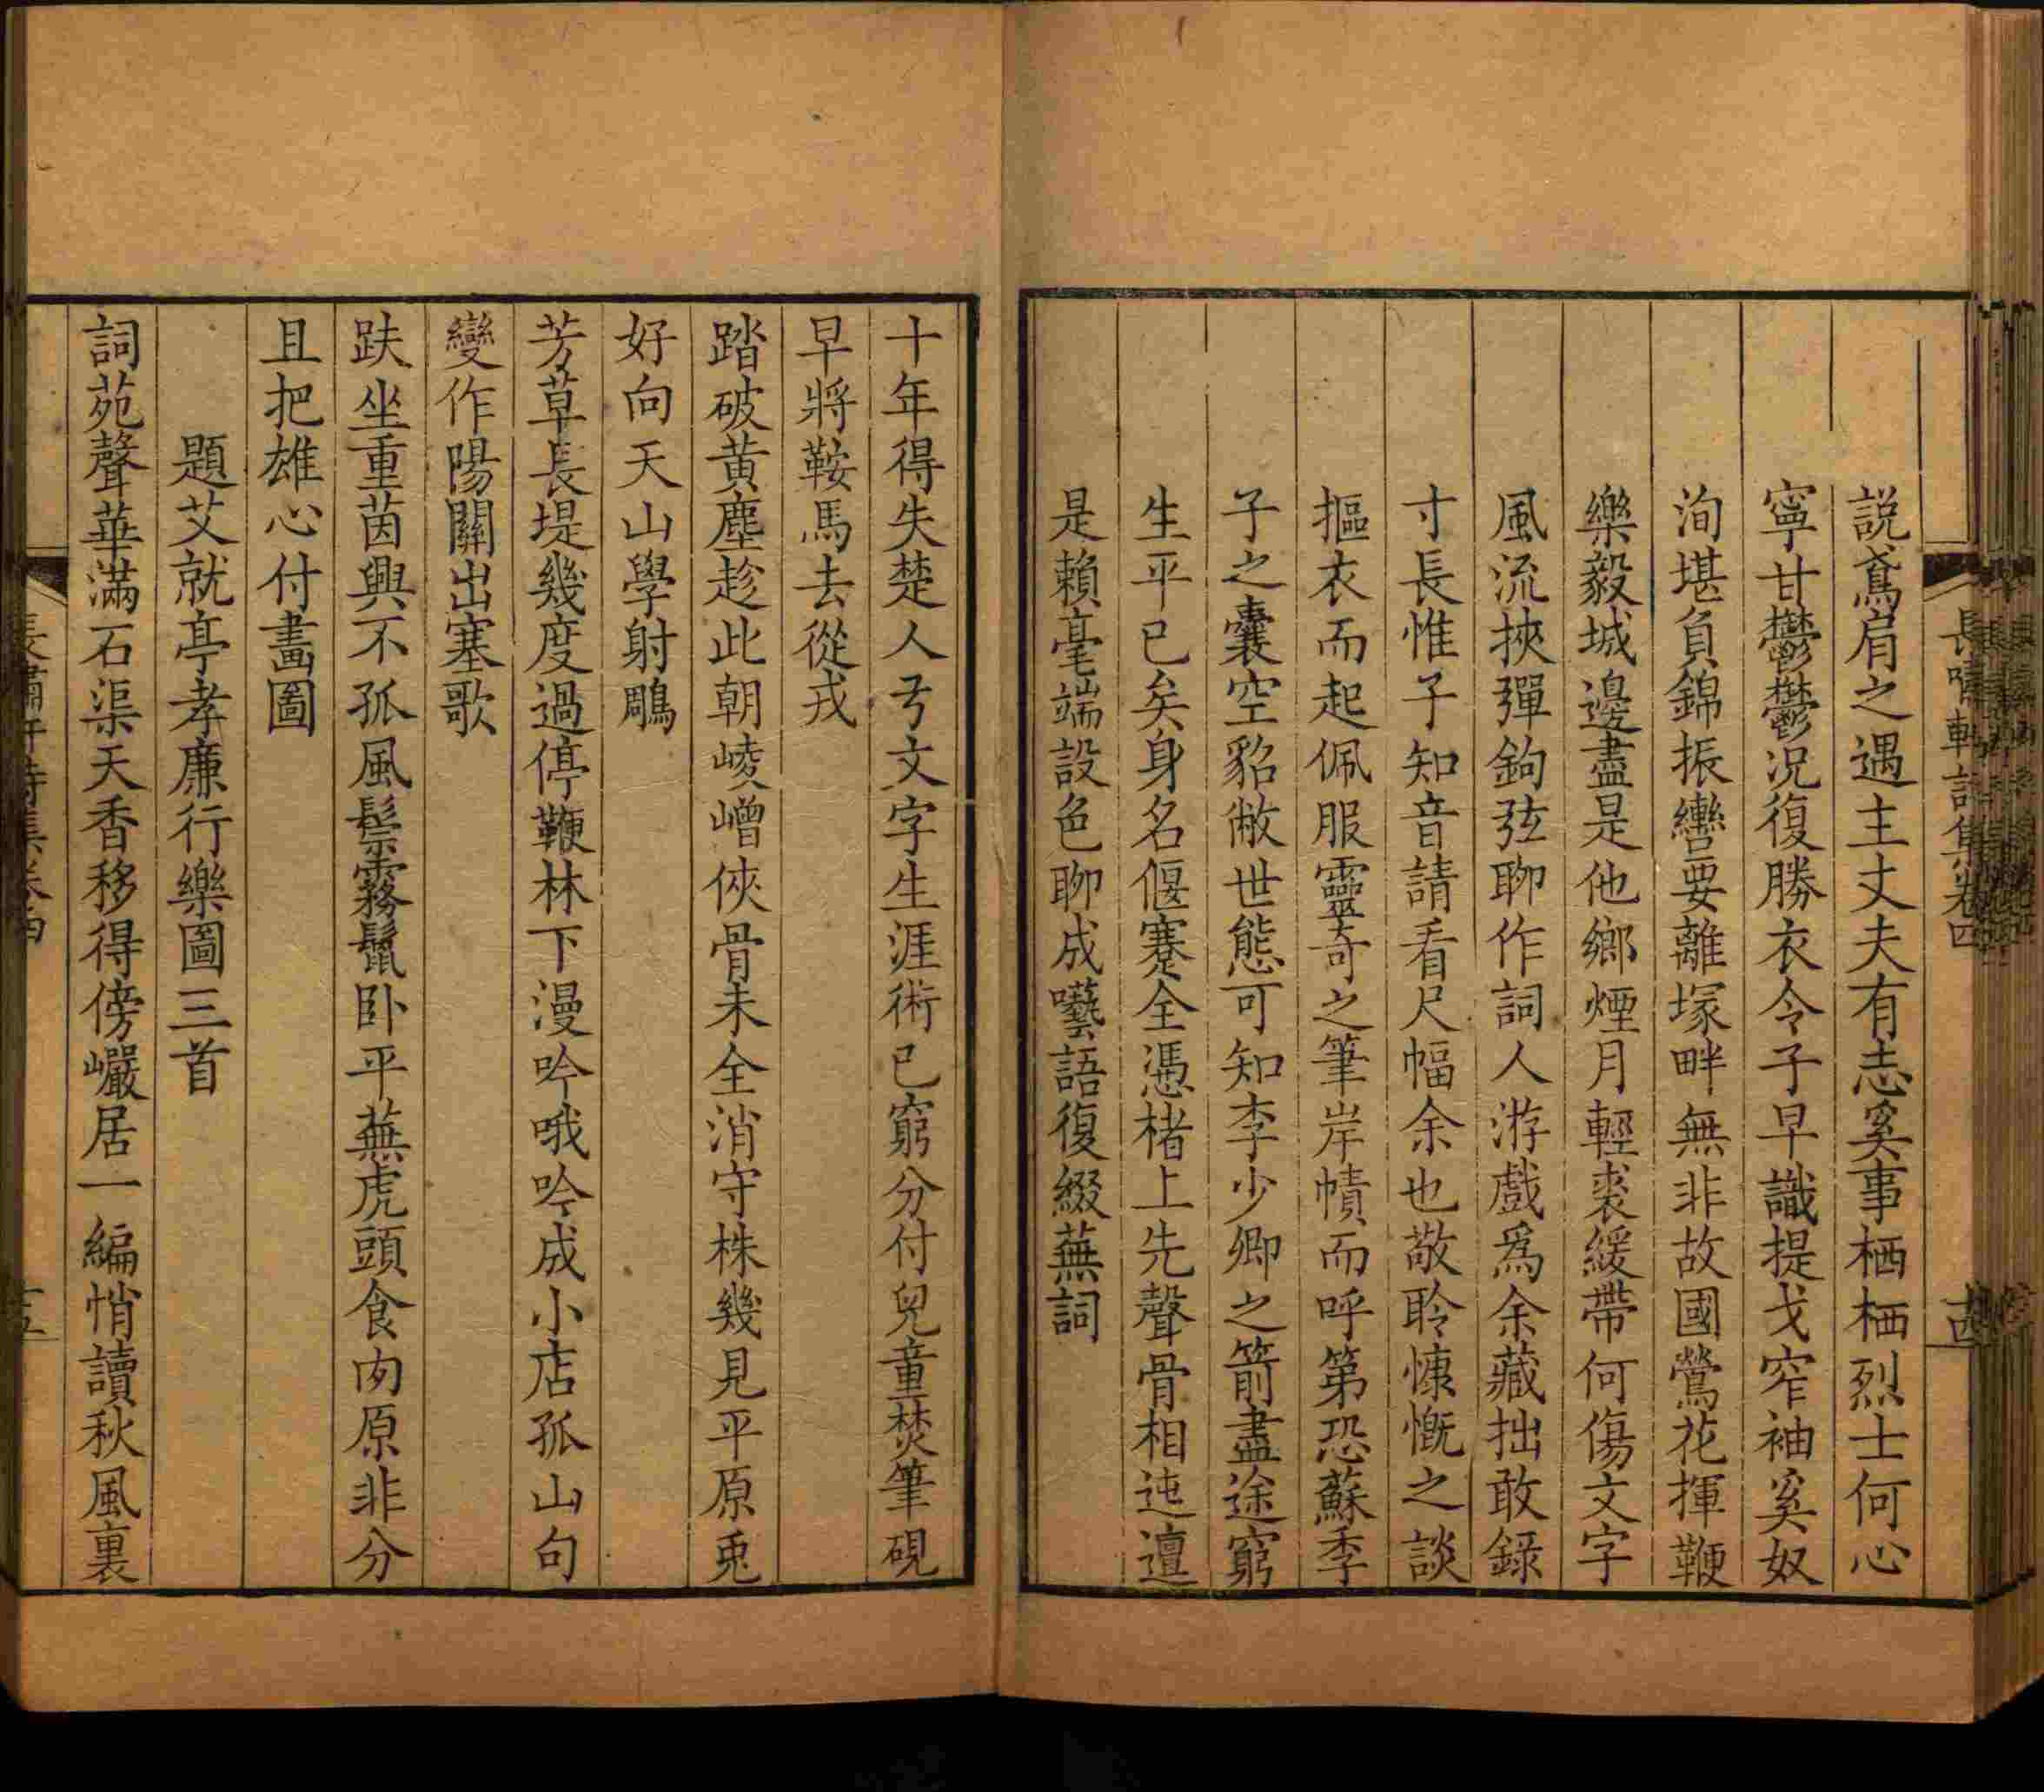 長嘯軒詩集卷四
説鳶肩之遇主丈夫有志奚事栖栖烈士何心
寧甘鬱鬱況復勝衣令子早識提戈窄袖奚奴
洵堪負錦振轡要離塚畔無非故國鶯花揮鞭
樂毅城邊盡是他鄉煙月輕裘緩帶何傷文字
風流挾彈鉤弦聊作詞人游戲爲余藏拙敢錄
寸長惟子知音請看尺幅余也敬聆慷慨之談
摳衣而起佩服靈奇之筆岸幘而呼第恐蘇季
子之囊空貂敝世態可知李少卿之箭盡途窮
生平已矣身名偃蹇全憑楮上先聲骨相迍邅
是賴毫端設色聊成囈語復綴蕪詞
十年得失楚人弓文字生涯術已窮分付兒童焚筆硯
早將鞍馬去從戎
踏破黃塵趁此朝崚嶒俠骨未全消守株幾見平原兎
好向天山學射鵰
芳草長堤幾度過停鞭林下漫吟哦吟成小店孤山句
變作陽關出塞歌
趺坐重茵興不孤風鬃霧鬣卧平蕪虎頭食肉原非分
且把雄心付畫圖
題艾就亭孝廉行樂圖三首
詞苑聲華滿石渠天香移得傍巖居一編悄讀秋風裏
長嘯軒詩集卷四
十五